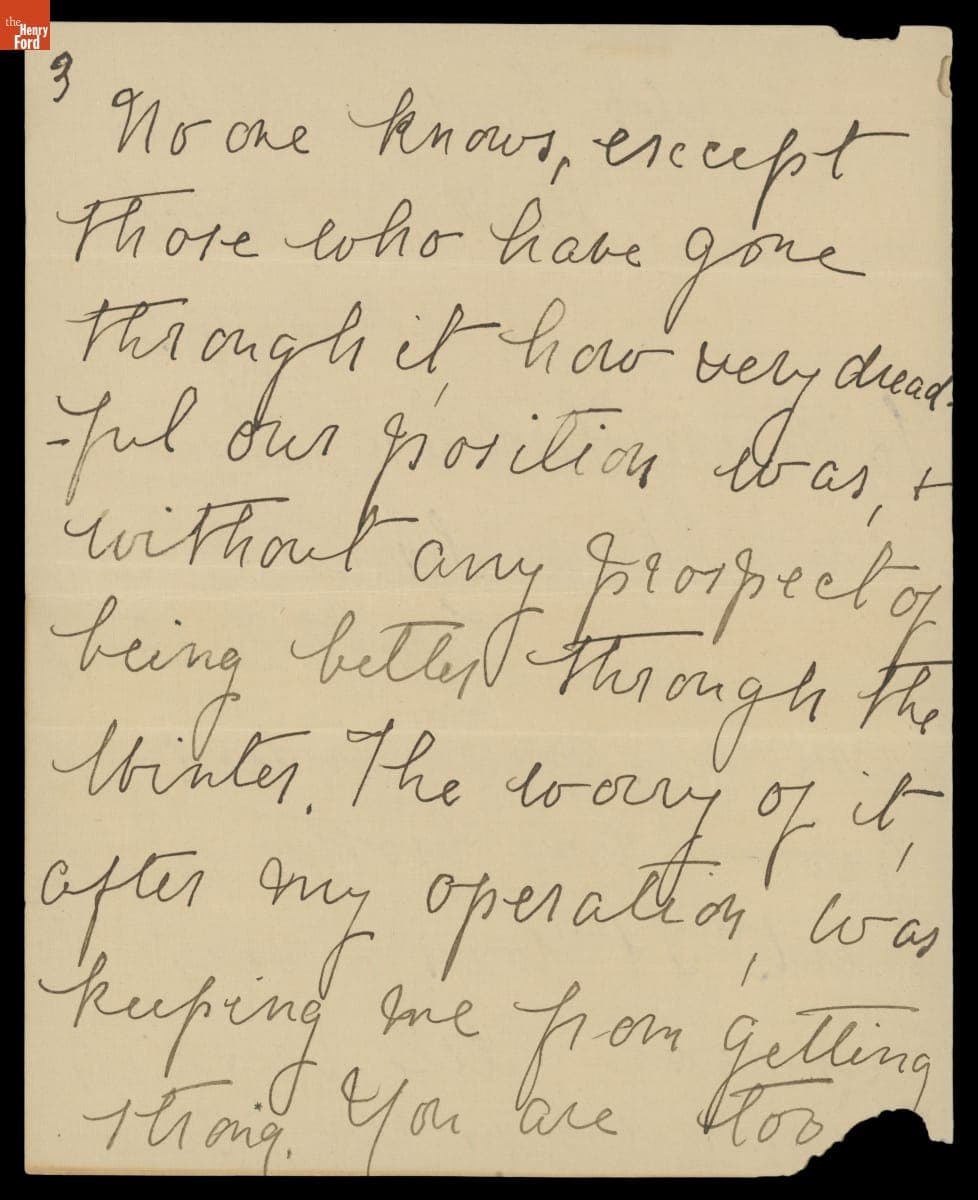 the
Henry
Ford
3
No one knows, except
those who have gone
through it, how very dread-
-ful our position was, +
without any prospect of
being better through the
Winter. The worry of it,
after my operation, was
keeping me from getting
strong. You are too